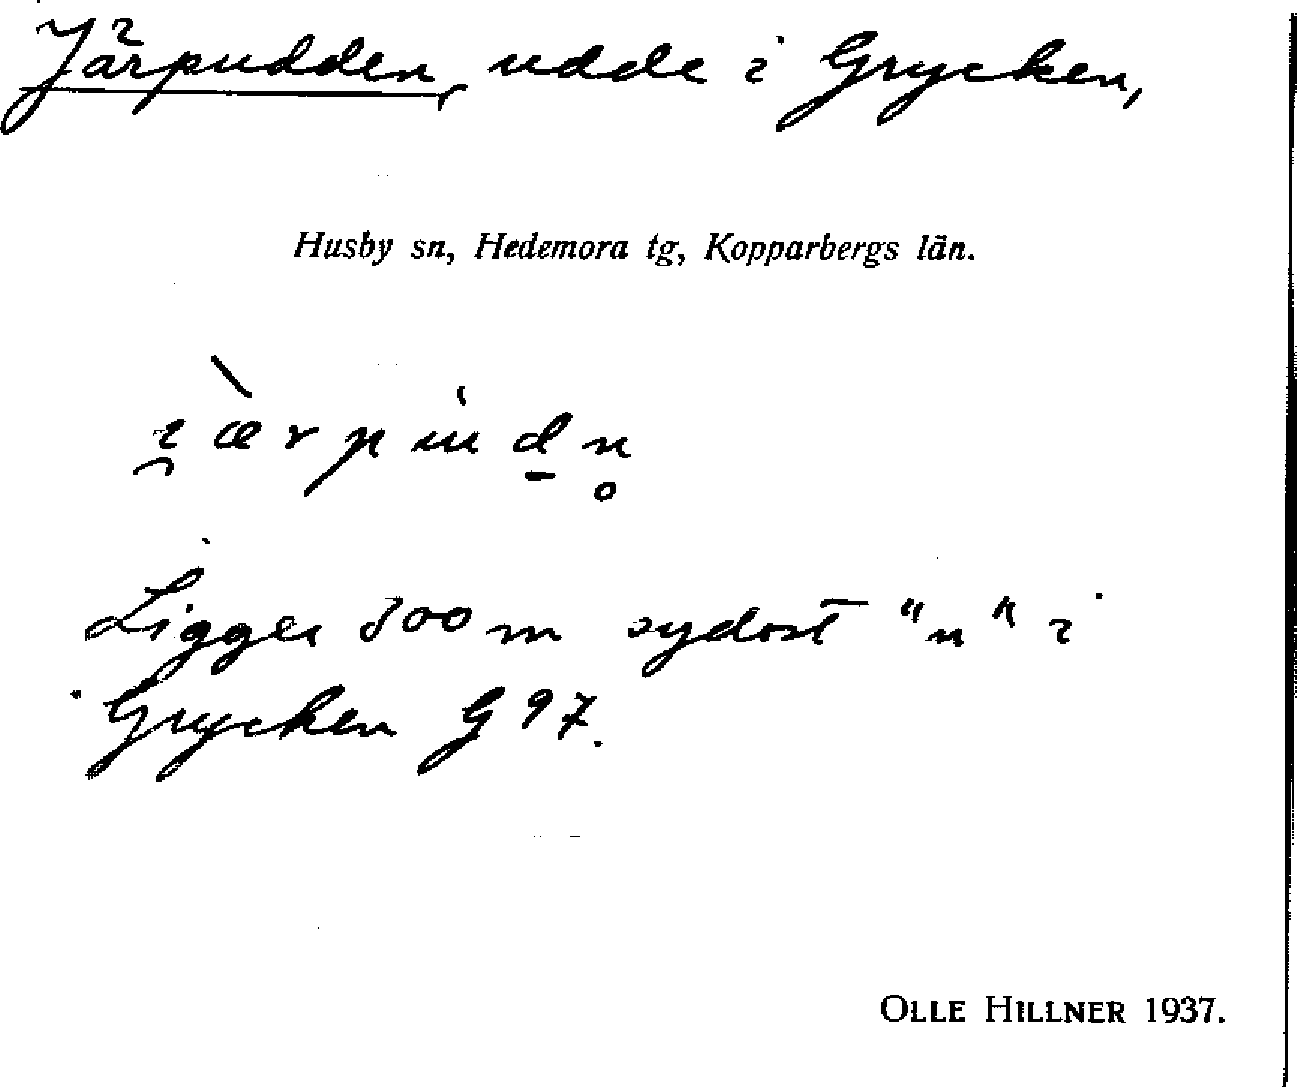 Järpudden, udde i Grycken,
Husby sn, Hedemora tg, Kopparbergs län.
Ligger 800 m sydost "n" i
Grycken G 97.
OLLE HILLNER 1937.